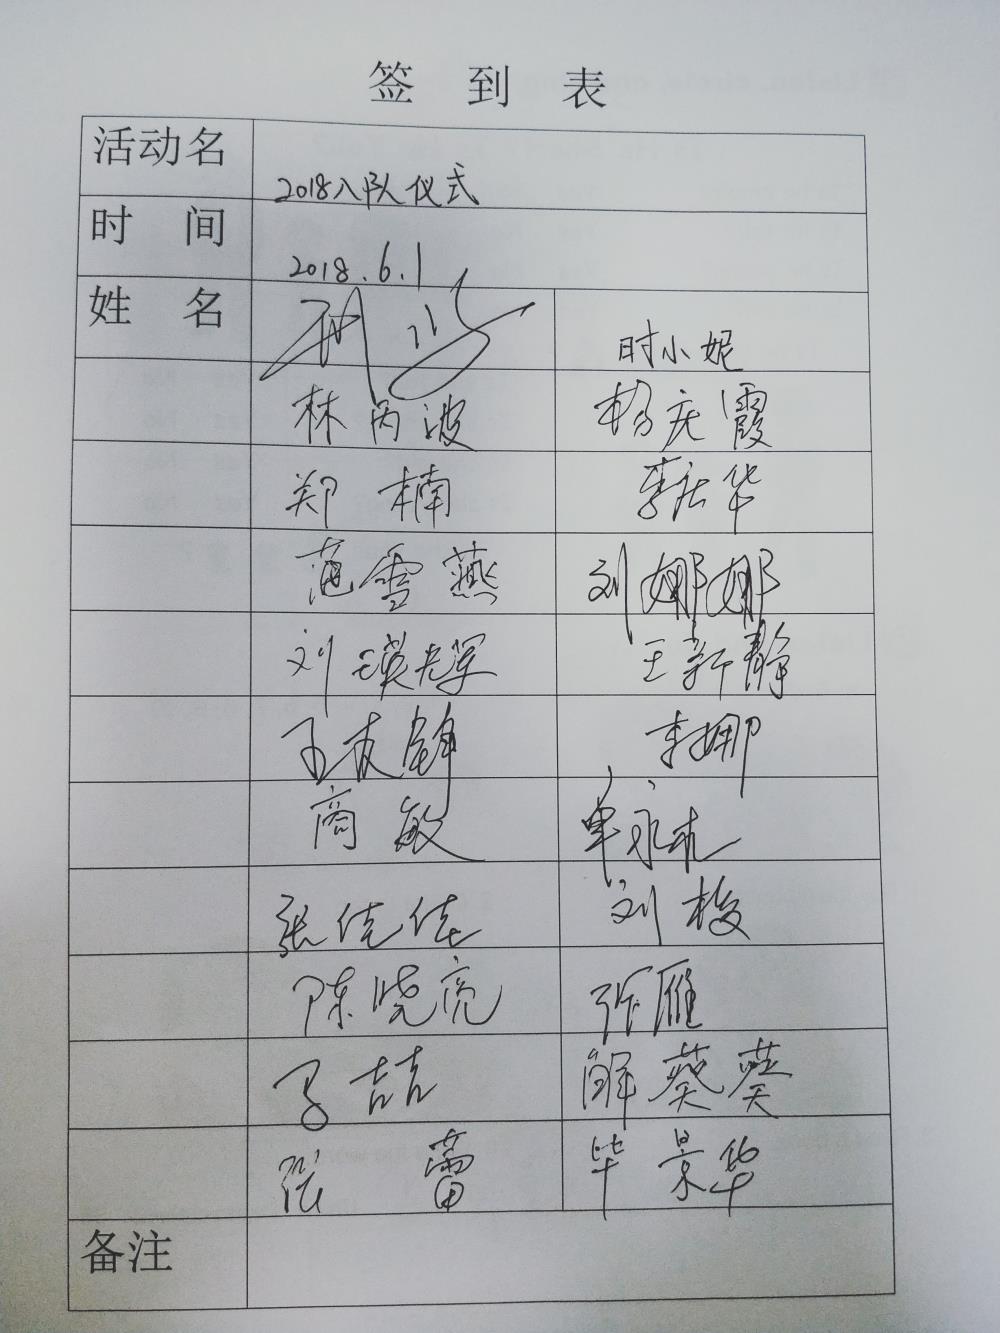 签 到 表
活动名 2018入队仪式
时 间 2018.6.1
姓 名 时小妮
林丙波 杨庆霞
郑楠 李庆华
范雪燕 刘娜娜
刘瑛 王新静
王友静 李娜
商敏
张佳佳 刘梭
陈晓亮 张雁
喆 解葵葵
张蕾 毕景华
备注